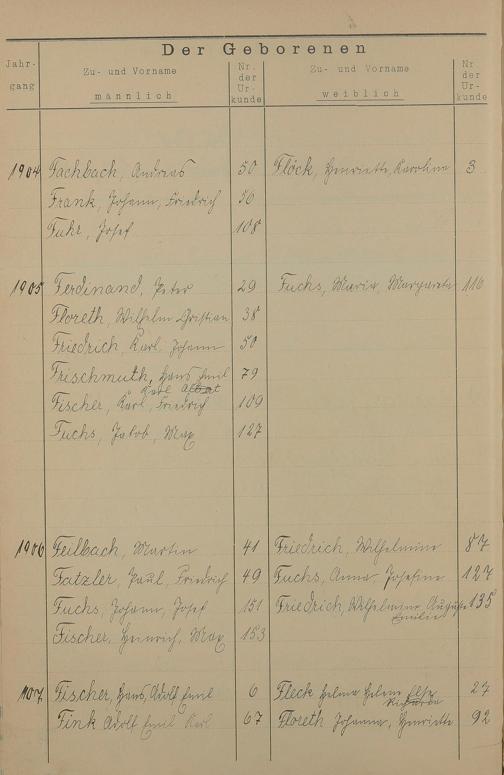 Der Geborenen
Jahr-
gang
Zu- und Vorname
männlich
Nr.
der
Ur-
kunde
Zu- und Vorname
weiblich
Nr
der
Ur-
kunde
1904 Fachbach, Andreas 50 Flöck, Henriette, Karoline 3
Frank, Johann, Friedrich 56
Fuhr, Josef 108
1905 Ferdinand, Peter 29 Fuchs, Maria, Margareta 116
Floreth, Wilhelm Christian 38
Friedrich, Karl, Johann 50
Frischmuth, Hans Emil 79
Karl Albert
Fischer, Karl, Friedrich 109
Fuchs, Jakob, Max 127
1906 Feilbach, Martin 41 Friedrich, Wilhelmine 87
Fatzler, Paul, Friedrich 49 Fuchs, Anna Josefine 127
Fuchs, Johann, Josef 151 Friedrich, Wilhelmine, Auguste 135
Emilie
Fischer, Heinrich, Max 153
1907 Fischer, Hans, Adolf Emil 6 Fleck Helma Helene Else 27
Fink Adolf Emil Karl 67 Floreth Johanna, Henriette 92